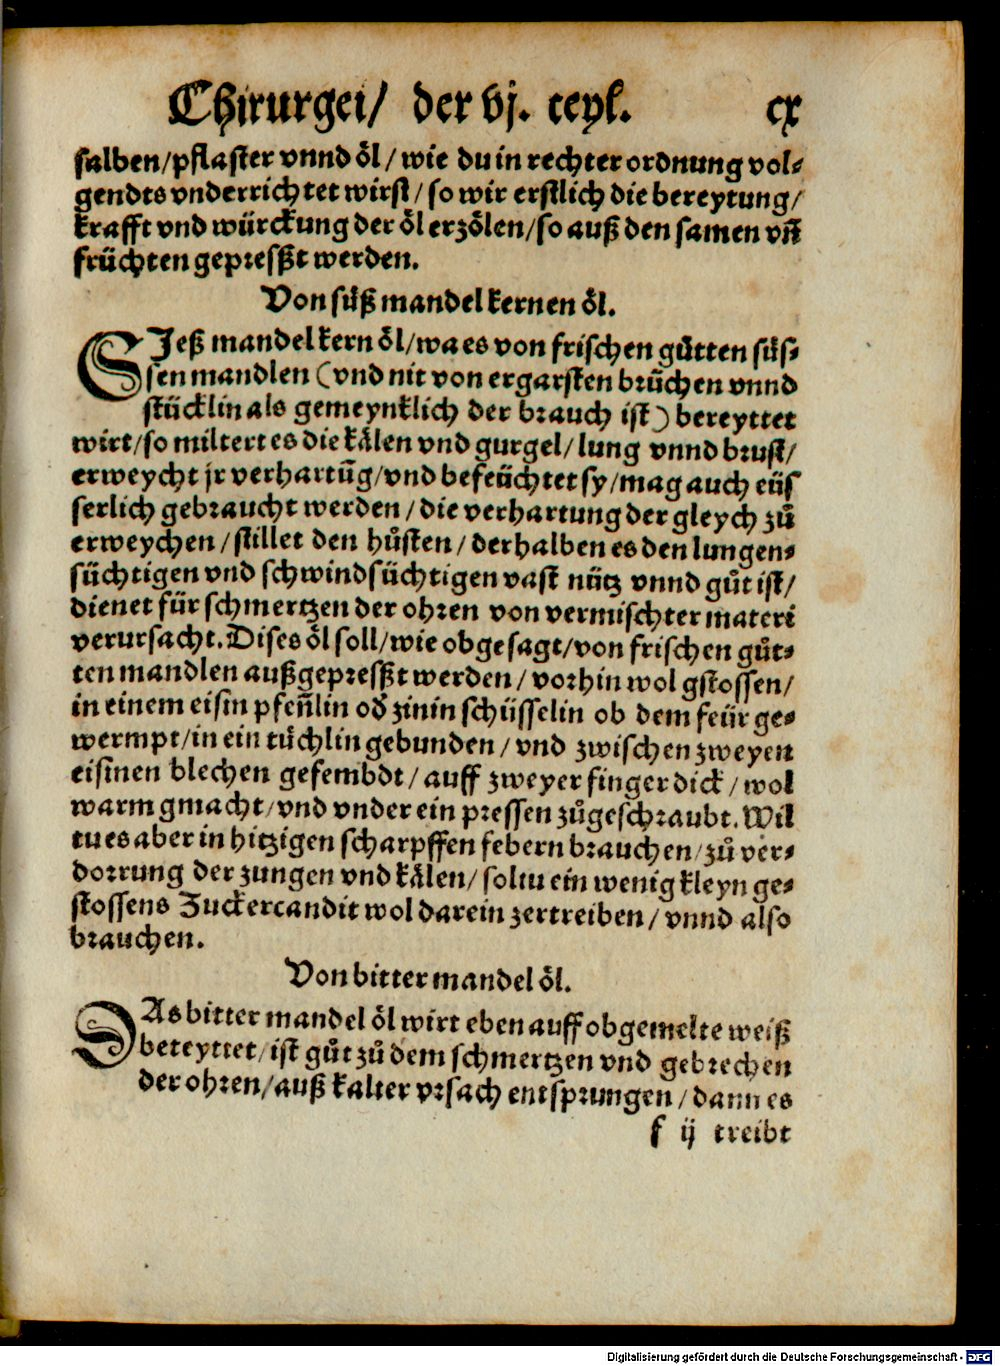 Chirurgei/ der vj. teyl. cx
salben/pflaster vnnd öl/wie du in rechter ordnung vol⸗
gendts vnderrichtet wirst/so wir erstlich die bereytung/
krafft vnd würckung der öl erzölen/so auß den samen vñ
früchten gepresßt werden.
Von süß mandel kernen öl.
SJeß mandel kern öl/wa es von frischen gůtten süs⸗
sen mandlen (vnd nit von ergarsten brüchen vnnd
stücklin als gemeynklich der brauch ist) bereyttet
wirt/so miltert es die kälen vnd gurgel/lung vnnd brust/
erweycht jr verhartũg/vnd befeüchtet sy/mag auch eüs
serlich gebraucht werden/die verhartung der gleych zů
erweychen/stillet den hůsten/derhalben es den lungen⸗
süchtigen vnd schwindsüchtigen vast nütz vnnd gůt ist/
dienet für schmertzen der ohren von vermischter materi
verursacht. Dises öl soll/wie obgesagt/von frischen gůt⸗
ten mandlen außgepresßt werden/vorhin wol gstossen/
in einem eisin pfeñlin oď zinin schüsselin ob dem feür ge⸗
wermpt/in ein tüchlin gebunden/vnd zwischen zweyen
eisinen blechen gesembdt/auff zweyer finger dick/wol
warm gmacht/vnd vnder ein pressen zůgeschraubt. Wil
tu es aber in hitzigen scharpffen febern brauchen/zů ver⸗
dorrung der zungen vnd kälen/soltu ein wenig kleyn ge⸗
stossens Zuckercandit wol darein zertreiben/vnnd also
brauchen.
Von bitter mandel öl.
DAs bitter mandel öl wirt eben auff obgemelte weiß
beteyttet/ist gůt zů dem schmertzen vnd gebrechen
der ohren/auß kalter vrsach entsprungen/dann es
f ij treibt
Digitalisierung gefördert durch die Deutsche Forschungsgemeinschaft - DFG